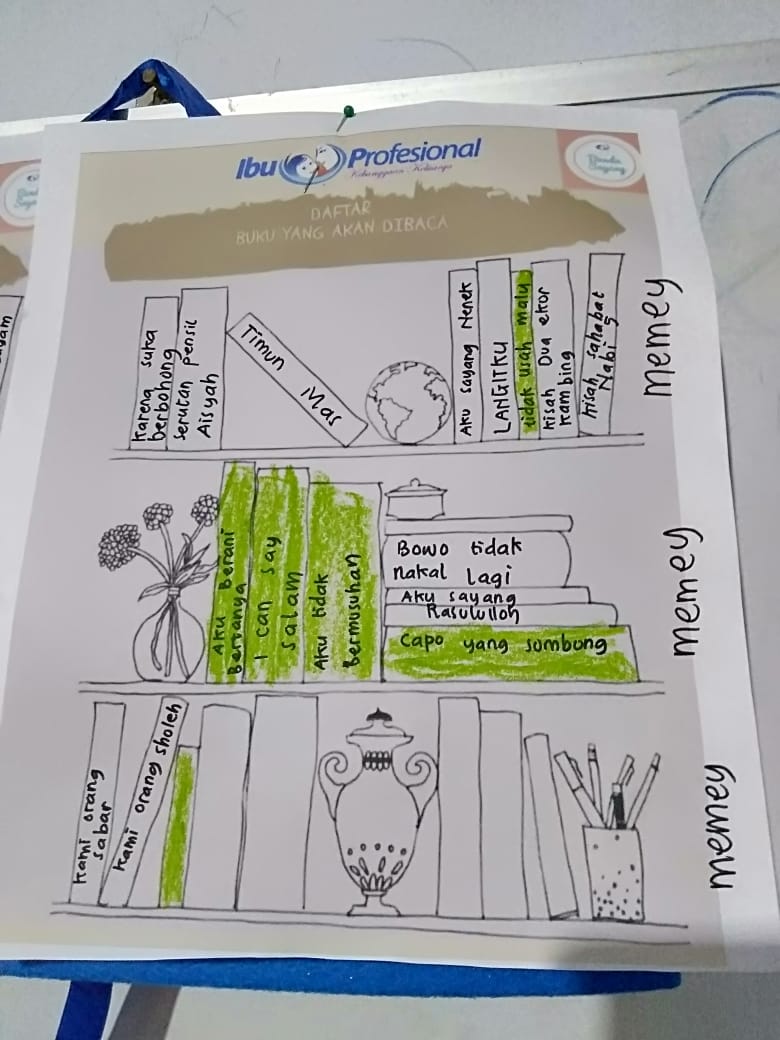 Ibu Profesional
Kebanggaan Keluarga
Bunda
Sayang
DAFTAR
BUKU YANG AKAN DIBACA
karena suka
berbohong
serutan pensil
Aisyah
Timun Mas
Aku sayang Nenek
LANGITKU
tidak usah malu
kisah Dua ekor
kambing
kisah sahabat
Nabi 5
memey
Aku berani
Bertanya
I can say
salam
Aku tidak
bermusuhan
Bowo tidak
nakal lagi
Aku sayang
Rasululloh
Capo yang sombong
memey
kami orang
sabar
kami orang sholeh
memey